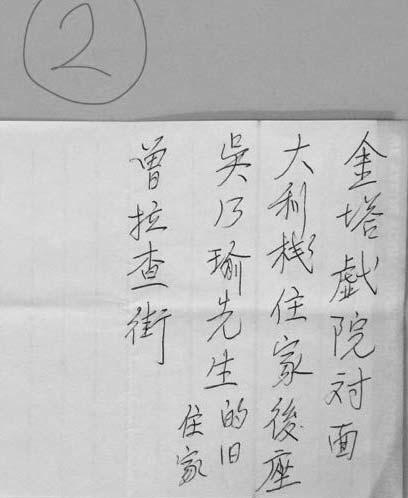 2
金塔戯院対面
大利栈住家後座
吳乃瑜先生的旧
住家
曾拉查街